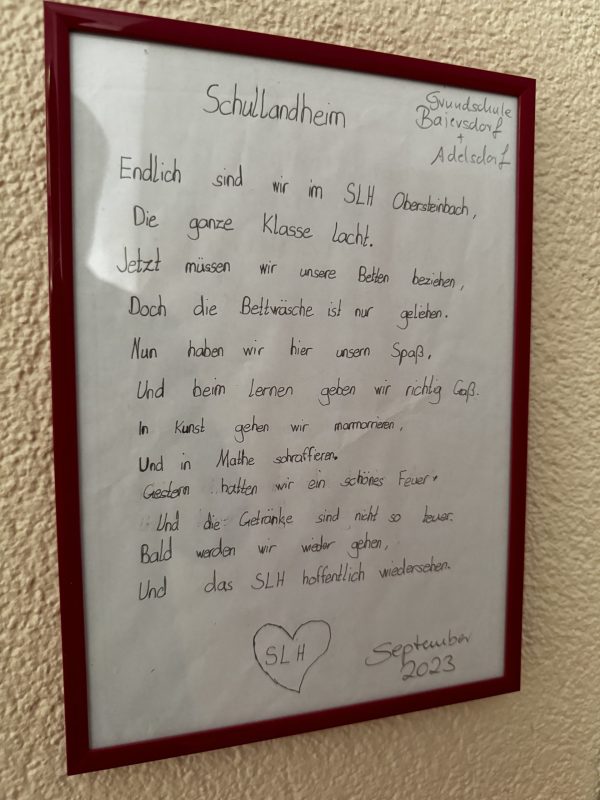 Schullandheim
Grundschule
Baiersdorf
+
Adelsdorf
Endlich sind wir im SLH Obersteinbach,
Die ganze Klasse lacht.
Jetzt müssen wir unsere Betten beziehen,
Doch die Bettwäsche ist nur geliehen.
Nun haben wir hier unsern Spaß,
Und beim Lernen geben wir richtig Gaß.
In Kunst gehen wir marmorieren,
Und in Mathe schraffieren.
Gestern hatten wir ein schönes Feuer,
Und die Getränke sind nicht so teuer.
Bald werden wir wieder gehen,
Und das SLH hoffentlich wiedersehen.
SLH
September
2023